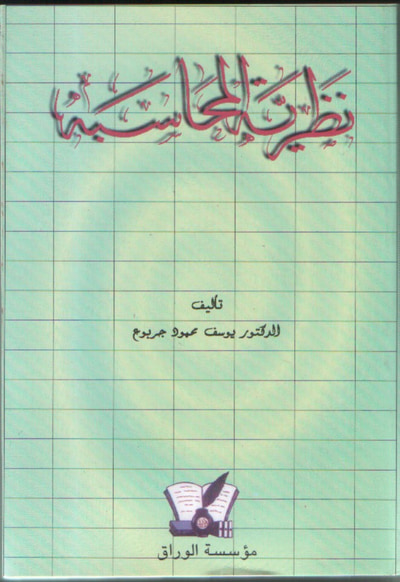 نظرية المحاسبة
تأليف
الدكتور يوسف محمود جربوع
مؤسسة الوراق